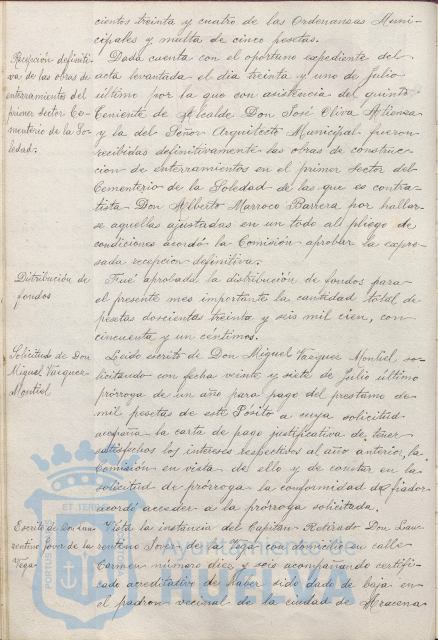 cientos treinta y cuatro de las Ordenanzas Muni-
cipales y multa de cinco pesetas.
Recepción definiti-
va de las obras de
enterramientos del
primer sector Ce-
menterio de la So-
ledad.
Dada cuenta con el oportuno expediente del
acta levantada el dia treinta y uno de julio
último por la que con asistencia del quinto
Teniente de Alcalde Don José Oliva Atienza
y la del Señor Arquitecto Municipal fueron
recibidas definitivamente las obras de construc-
cion de enterramientos en el primer sector del
Cementerio de la Soledad de las que es contra-
tista Don Alberto Marroco Barrera por hallar-
se aquellas ajustadas en un todo al pliego de
condiciones acordó la Comisión aprobar la expre-
sada recepcion definitiva.
Distribución de
fondos
Fué aprobada la distribución de fondos para
el presente mes importante la cantidad total de
pesetas doscientas treinta y seis mil cien, con
cincuenta y un céntimos.
Solicitud de Don
Miguel Vazquez
Montiel
Leido escrito de Don Miguel Vazquez Montiel so-
licitando con fecha veinte y siete de Julio último
prórroga de un año para pago del prestamo de
mil pesetas de este Pósito a cuya solicitud
acompaña la carta de pago justificativa de tener
satisfechos los intereses respectivos al año anterior, la
Comisión en vista de ello y de constar en la
solicitud de prórroga la conformidad del fiador
acordó acceder a la prórroga solicitada.
Escrito de Don Lau-
rentino Jover de la
Vega
Vista la instancia del Capitan Retirado Don Lau-
rentino Jover de la Vega con domicilio en calle
Carmen número diez y seis acompañando certifi-
cado acreditativo de haber sido dado de baja en
el padron vecinal de la ciudad de Aracena
Ayuntamiento de
HUELVA